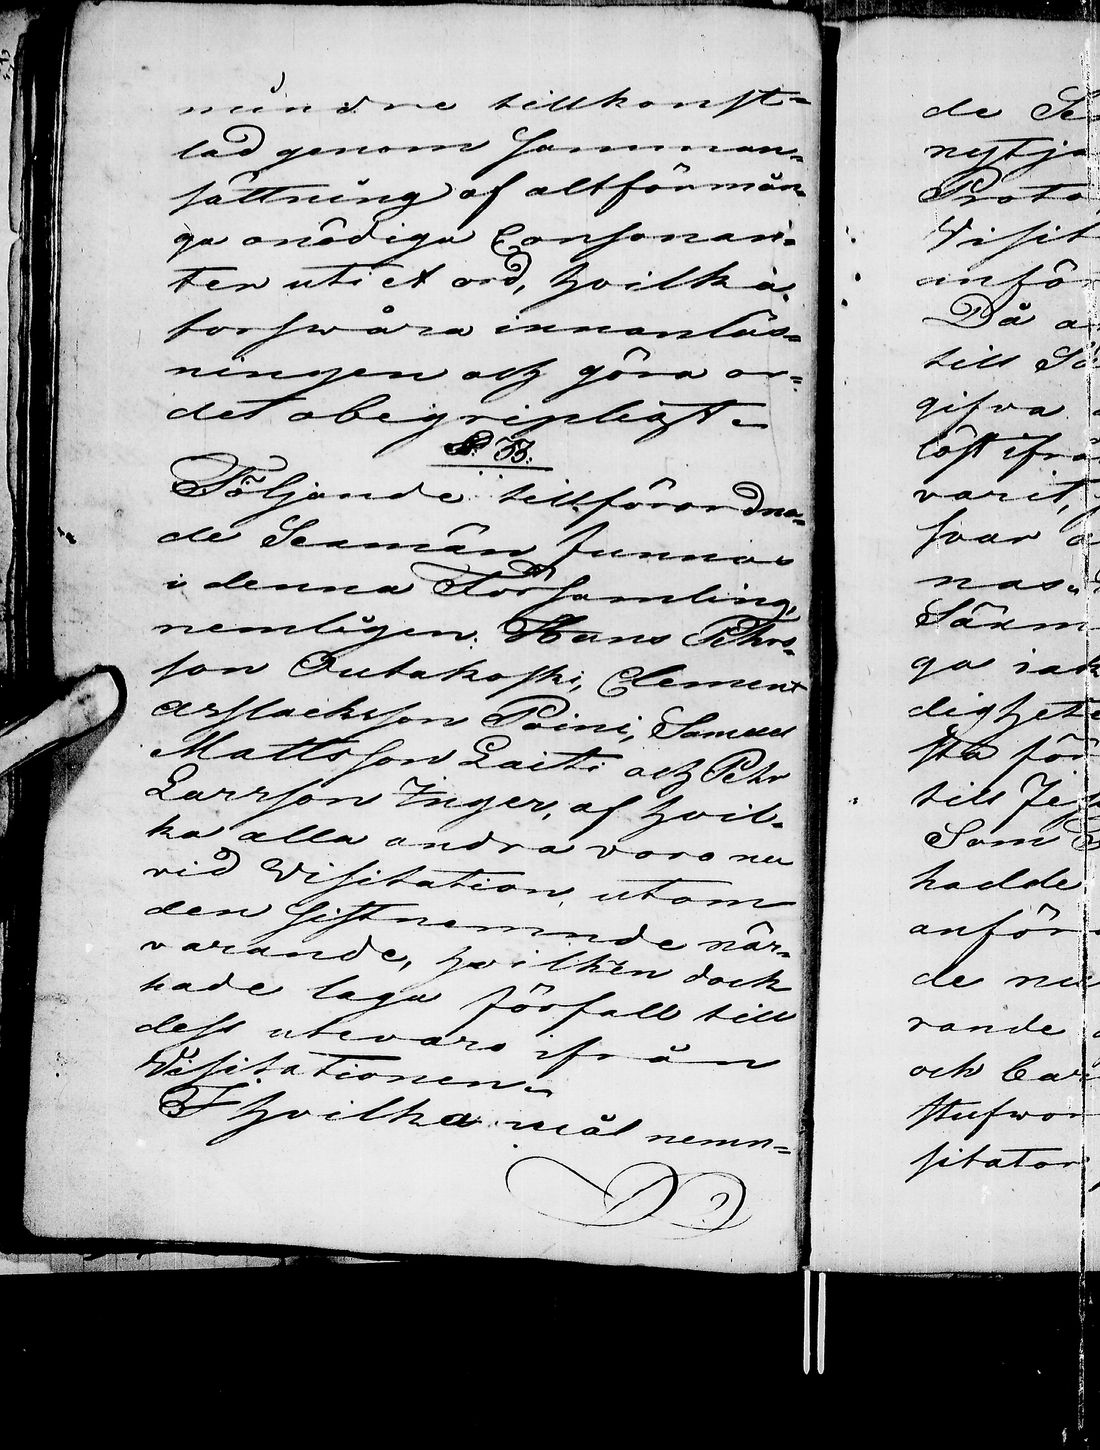 mindre tillkonst=
lad genom samman-
sättning af altförmån-
ga onödiga Consonan-
ter uti et ord, hvilka
försvåra innanläs=
ningen och göra or=
det obegripligst.
§. 33.
Följande tillförordna-
de Sexmän funnos
i denna Församling,
nemligen: Hans Pehrs-
son Outakoski, Clement
Arslacksson Poini, Samuel
Mattsson Laiti och Pehr
Larsson Inger, af hvil-
ka alla andra voro nu
vid Visitation utom
den sistnemnde när-
varande, hvilken dock
hade laga förfall till
dess utevaro ifrån
Visitationen.
I hvilka mål nemn=
de Se
nytja
Proto
Visit
anför
Då a
till Se
gifva
löst ifrå
varit,
svar
nas
Särm
ga iak
dighete
sta för
till Je
Som
hadde
anför
de nu
rande
och Car
stufwor
sitator